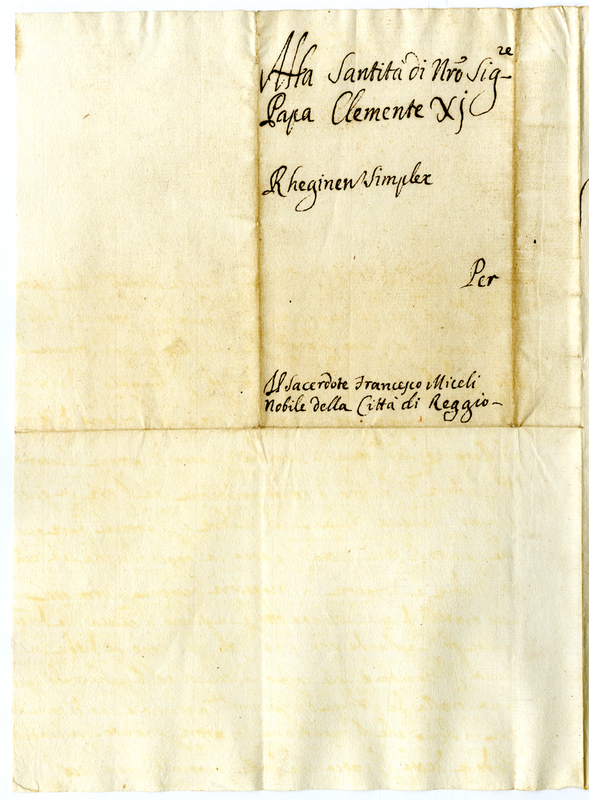 Alla Santità di Nrõ Sigre
Papa Clemente Xj
Rheginen Simplex
Per
Il Sacerdote Francesco Miceli
Nobile della Città di Reggio